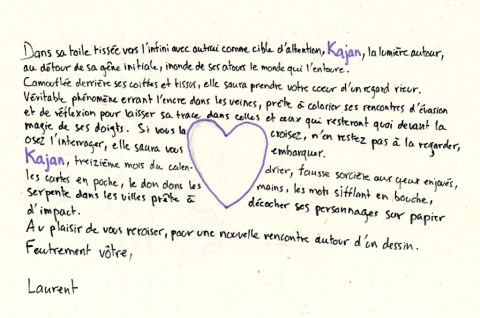 Dans sa toile tissée vers l'infini avec autrui comme cible d'attention, Kajan, la lumière autour,
au détour de sa gêne initiale, inonde de ses atours le monde qui l'entoure.
Camouflée derrière ses coiffes et tissus, elle saura prendre votre coeur d'un regard rieur.
Véritable phénomène errant l'encre dans les veines, prête à colorier ses rencontres d'évasion
et de réflexion pour laisser sa trace dans celles et ceux qui resteront quoi devant la
magie de ses doigts. Si vous la croisez, n'en restez pas à la regarder,
osez l'interroger, elle saura vous embarquer.
Kajan, treizième mois du calendrier, fausse sorcière aux yeux enjoués,
les cartes en poche, le don dans les mains, les mots sifflant en bouche,
serpente dans les villes prête à décocher ses personnages sur papier
d'impact.
Au plaisir de vous recroiser, pour une nouvelle rencontre autour d'un dessin.
Feutrement vôtre,
Laurent